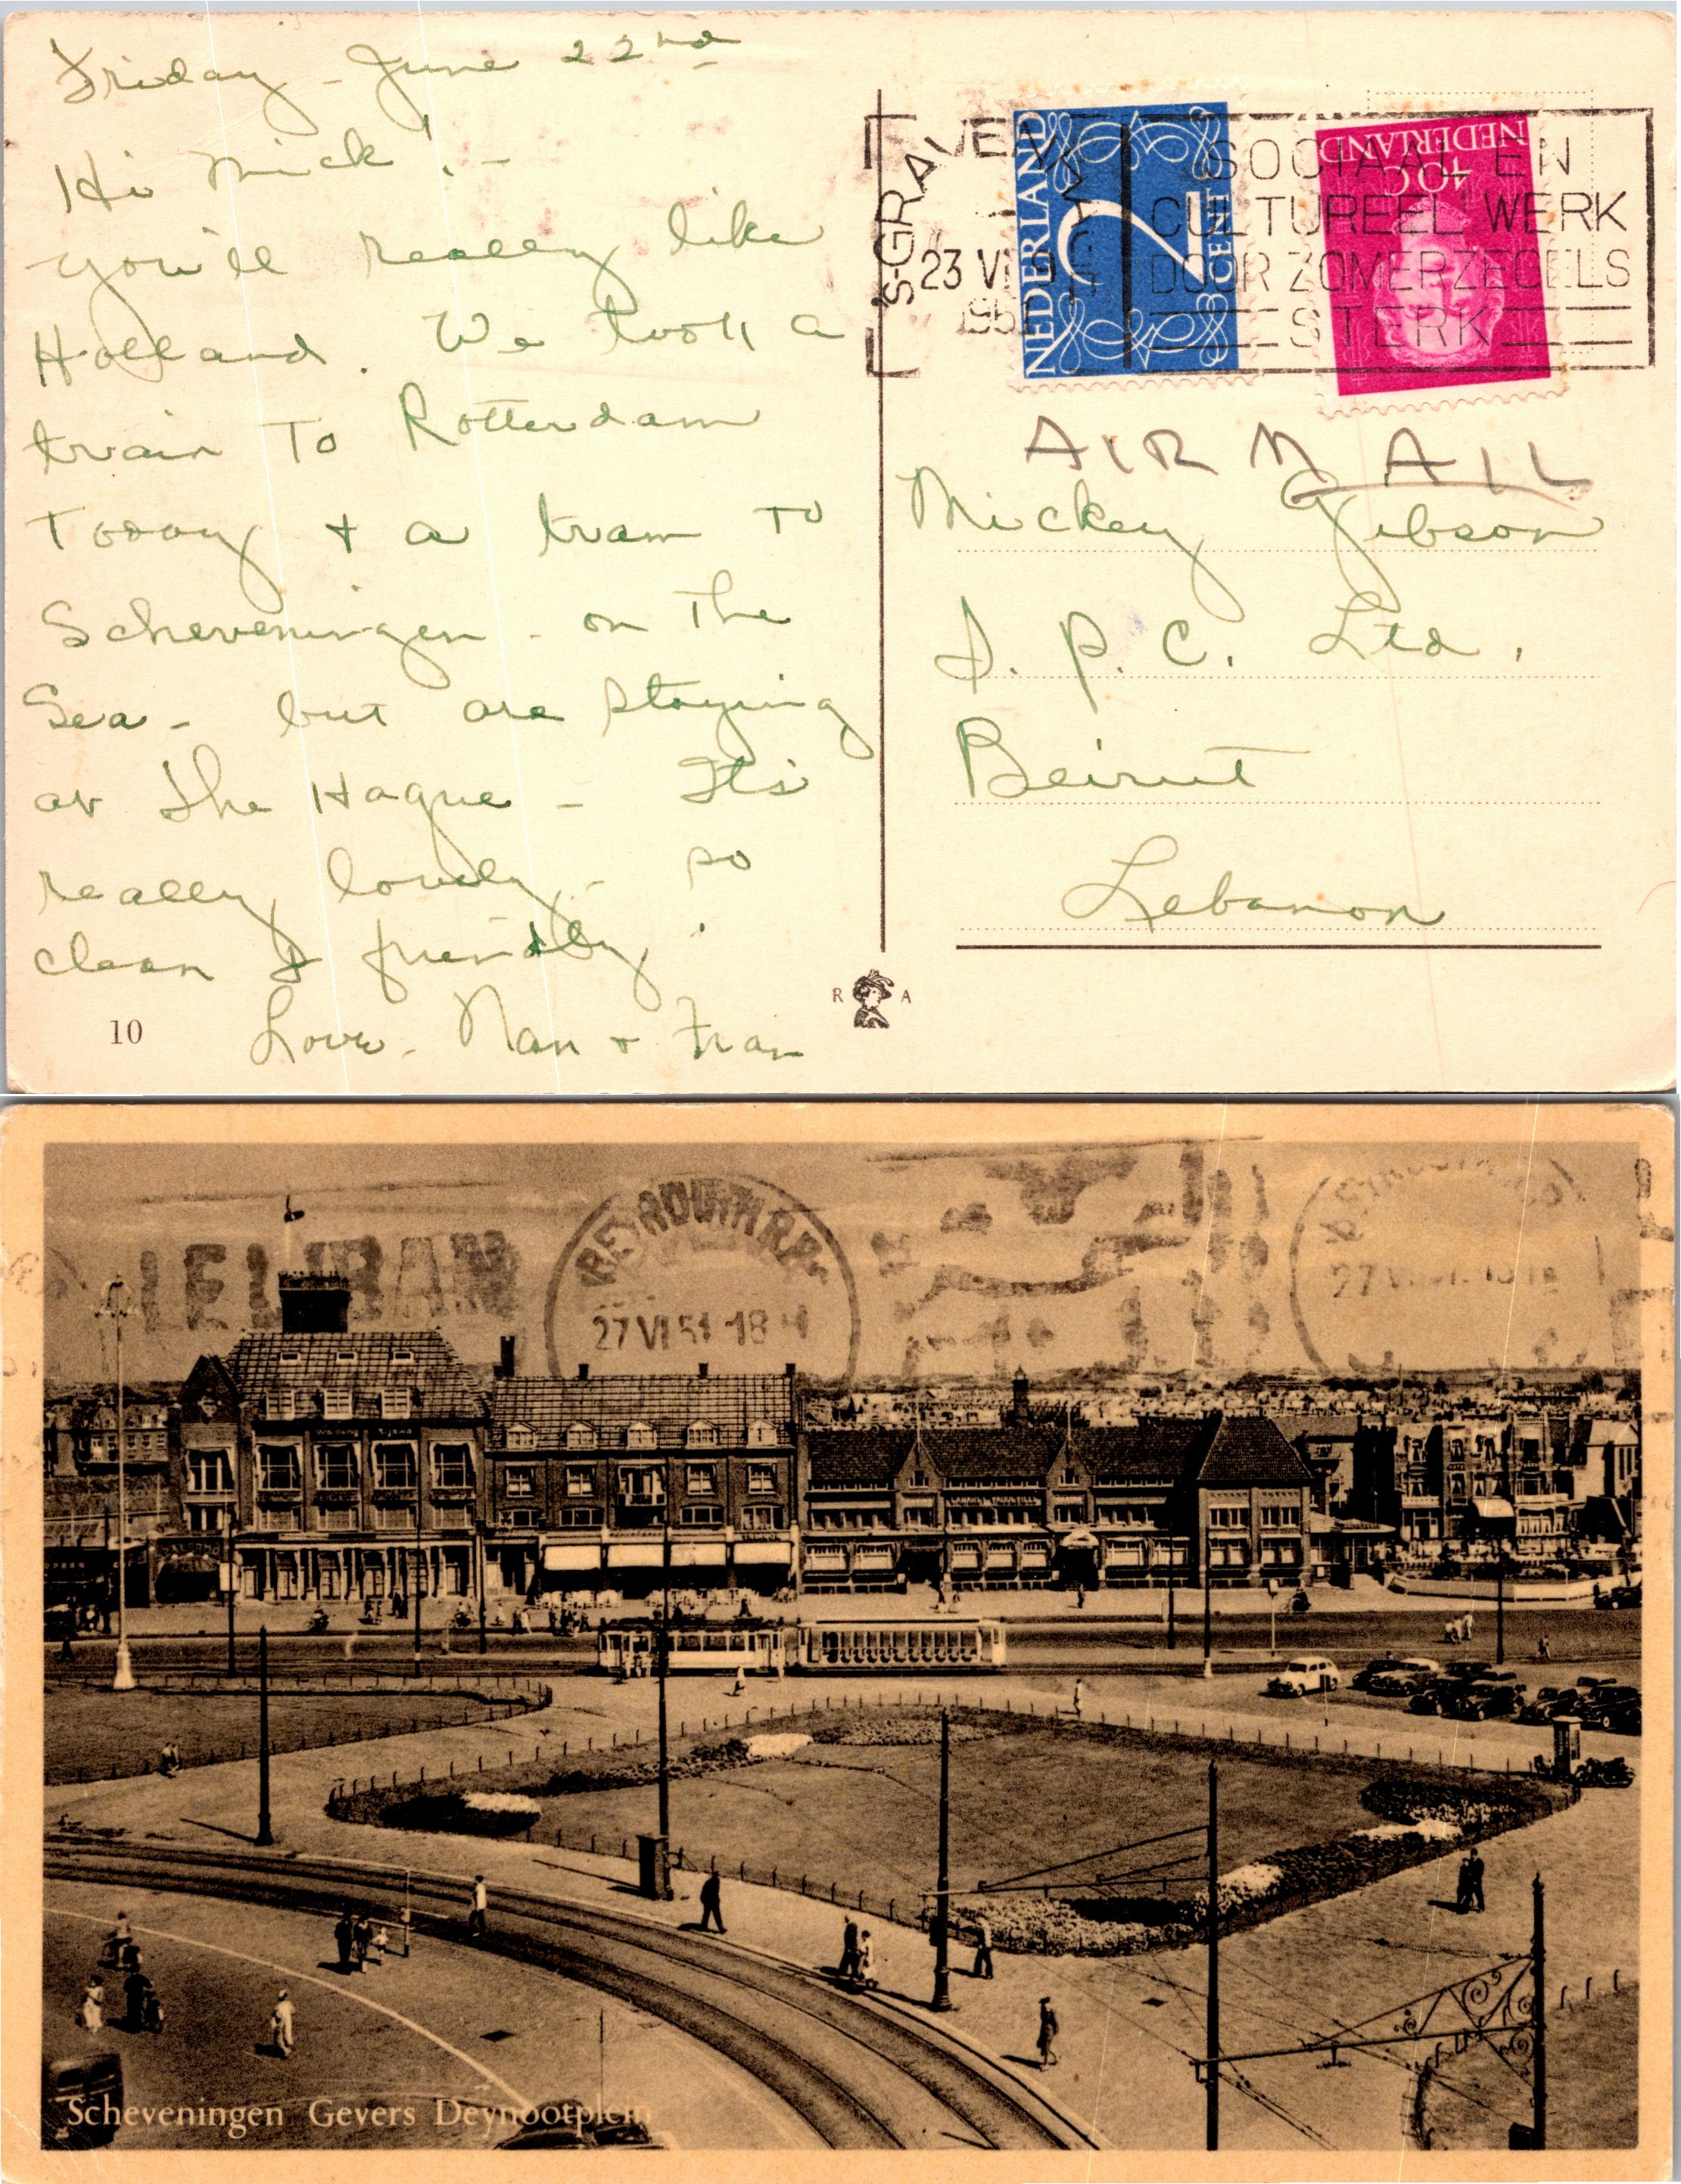 Friday - June 22nd
Hi Mick! -
You'll really like
Holland. We took a
train To Rotterdam
Today + a tram To
Scheveningen - on The
Sea - but are staying
at The Hague - It's
really lovely - so
clean & friendly!
Love - Nan + Fran
10
R A
'S-GRAVEN
23 VI
195
NEDERLAND
2
CENT
NEDERLAND
10C
SOCIAAL EN
CULTUREEL WERK
DOOR ZOMERZEGELS
STERK
AIR MAIL
Mickey Gibson
I. P. C. Ltd.
Beirut
Lebanon
LE LIBAN
BEYROUTH R.P.
27 VI 51 18 H
27 VI
PALERMO
Scheveningen Gevers Deynootplein